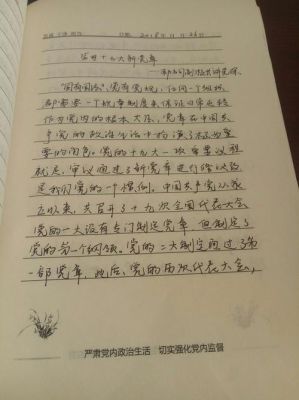 日期 2018年11月26日
学习十九大新党章
"国有国法,党有党规",任何一个组织
都需要一个规章制度来保证日常运转
作为党内的根本大法,党章在中国共
产党的政治生活中扮演了极为重
要的角色。党的十九大一项重要议程
就是,审议通过了新党章进行修改这
是我们党的一个惯例,中国共产党从成
立以来,共召开了十九次全国代表大会
党的一大没有专门制定党章,但制定了
党的第一个纲领。党的二大制定通过了第
一部党章,此后,党的历次代表大会,
严肃党内政治生活 切实强化党内监督